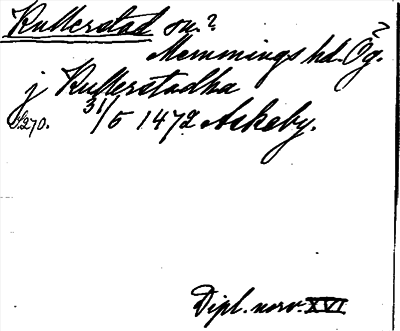 Kullerstad sn.?
Memmings hd. Ög.?
j Kullerstadha
31/5 1472 Askeby.
s. 270.
Dipl. norv. XVI